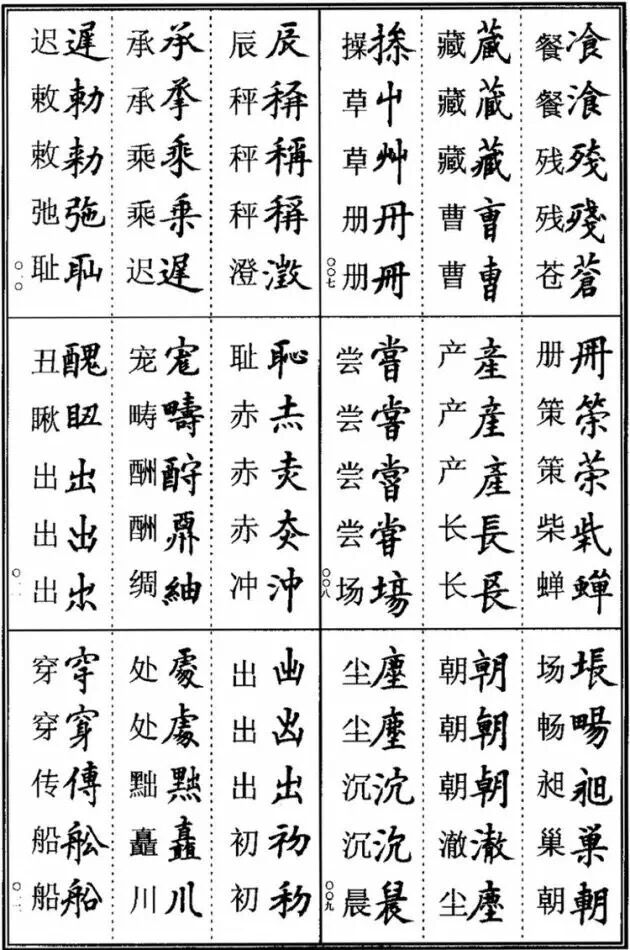 餐飡 餐湌 残殘 残殘 苍蒼
藏蔵 藏蔵 藏藏 曹曺 曹曺
操摻 草屮 草艸 册冊 册冊
〇〇七
册冊 策筞 策茦 柴㧘 蝉蟬
产產 产產 产產 长長 长镸
尝嘗 尝甞 尝嘗 尝甞 场塲
〇〇八
场塲 畅暘 昶昶 巢巣 朝朝
朝朝 朝朝 朝朝 澈澈 尘塵
尘塵 尘塵 沉沉 沉沉 晨晨
〇〇九
辰辰 秤稱 秤稱 秤稱 澄澂
承承 承承 乘乗 乘乗 迟遲
迟遲 敕勑 敕勑 弛㢮 耻耻
〇一〇
耻恥 赤赤 赤赤 赤赤 冲沖
宠寵 畴疇 酬酧 酬 绸紬
丑醜 瞅䀹 出出 出出 出出
〇一一
出岀 出出 出出 初初 初初
处處 处處 黜黜 矗矗 川川
穿穿 穿穿 传傳 船舩 船船
〇一二